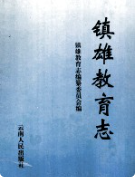 镇雄教育志
镇雄教育志编纂委员会编
云南人民出版社